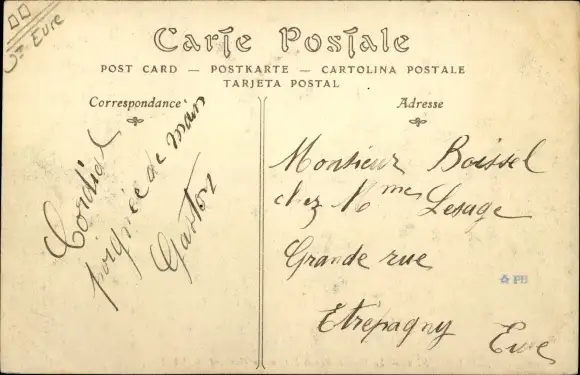 Eure
Carte Postale
POST CARD — POSTKARTE — CARTOLINA POSTALE
TARJETA POSTAL
Correspondance
Cordial
poignée de main
Gaston
Adresse
Monsieur Boissel
chez Mme Lesage
Grande rue
Etrépagny Eure
PH